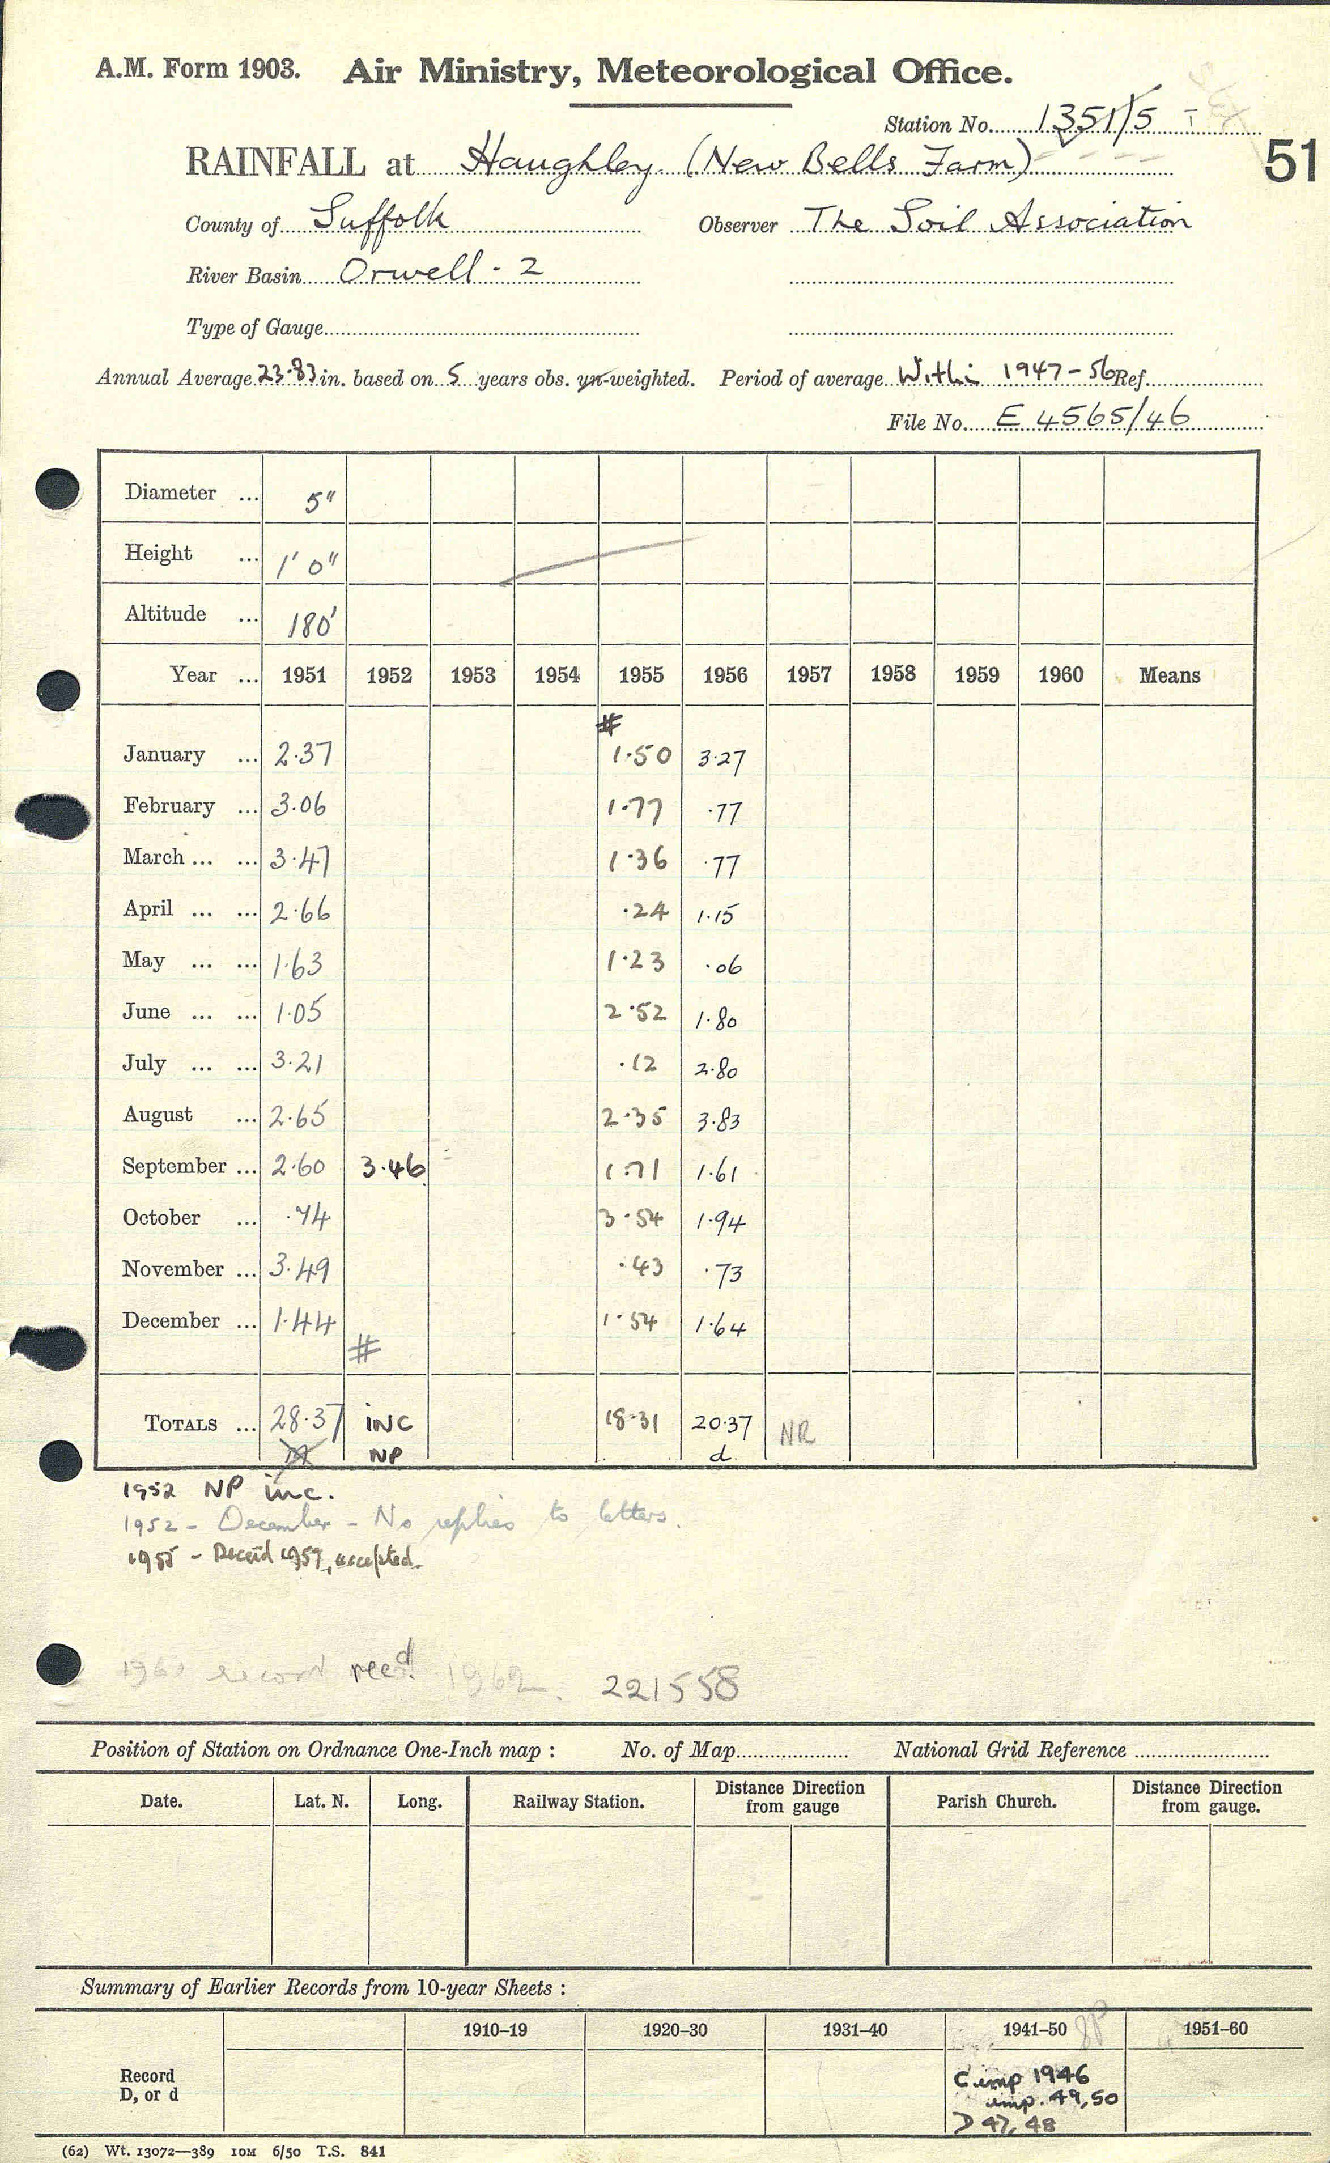 A.M. Form 1903. Air Ministry, Meteorological Office.
Station No. 1351/5
RAINFALL at Haughley (New Bells Farm) 51
County of Suffolk Observer The Soil Association
River Basin Orwell - 2
Type of Gauge
Annual Average 23.83 in. based on 5 years obs. un-weighted. Period of average Within 1947-56 Ref.
File No. E 4565/46
Diameter ... 5"
Height ... 1' 0"
Altitude ... 180'
Year ... 1951 1952 1953 1954 1955 1956 1957 1958 1959 1960 Means
#
January ... 2.37 1.50 3.27
February ... 3.06 1.77 .77
March ... ... 3.47 1.36 .77
April ... ... 2.66 .24 1.15
May ... ... 1.63 1.23 .06
June ... ... 1.05 2.52 1.80
July ... ... 3.21 .12 2.80
August ... 2.65 2.35 3.83
September ... 2.60 3.46 1.71 1.61
October ... .74 3.54 1.94
November ... 3.49 .43 .73
December ... 1.44 1.54 1.64
#
TOTALS ... 28.37 INC 18.31 20.37 NR
NP d
1952 NP inc.
1952 - December - No replies to letters.
1955 - Recd 1959, accepted.
record recd. 1962. 221558
Position of Station on Ordnance One-Inch map : No. of Map National Grid Reference
Date. Lat. N. Long. Railway Station. Distance Direction from gauge Parish Church. Distance Direction from gauge.
Summary of Earlier Records from 10-year Sheets :
1910–19 1920–30 1931–40 1941–50 1951–60
Record D, or d
C imp 1946
imp. 49, 50
D 47, 48
(62) Wt. 13072—389 10M 6/50 T.S. 841